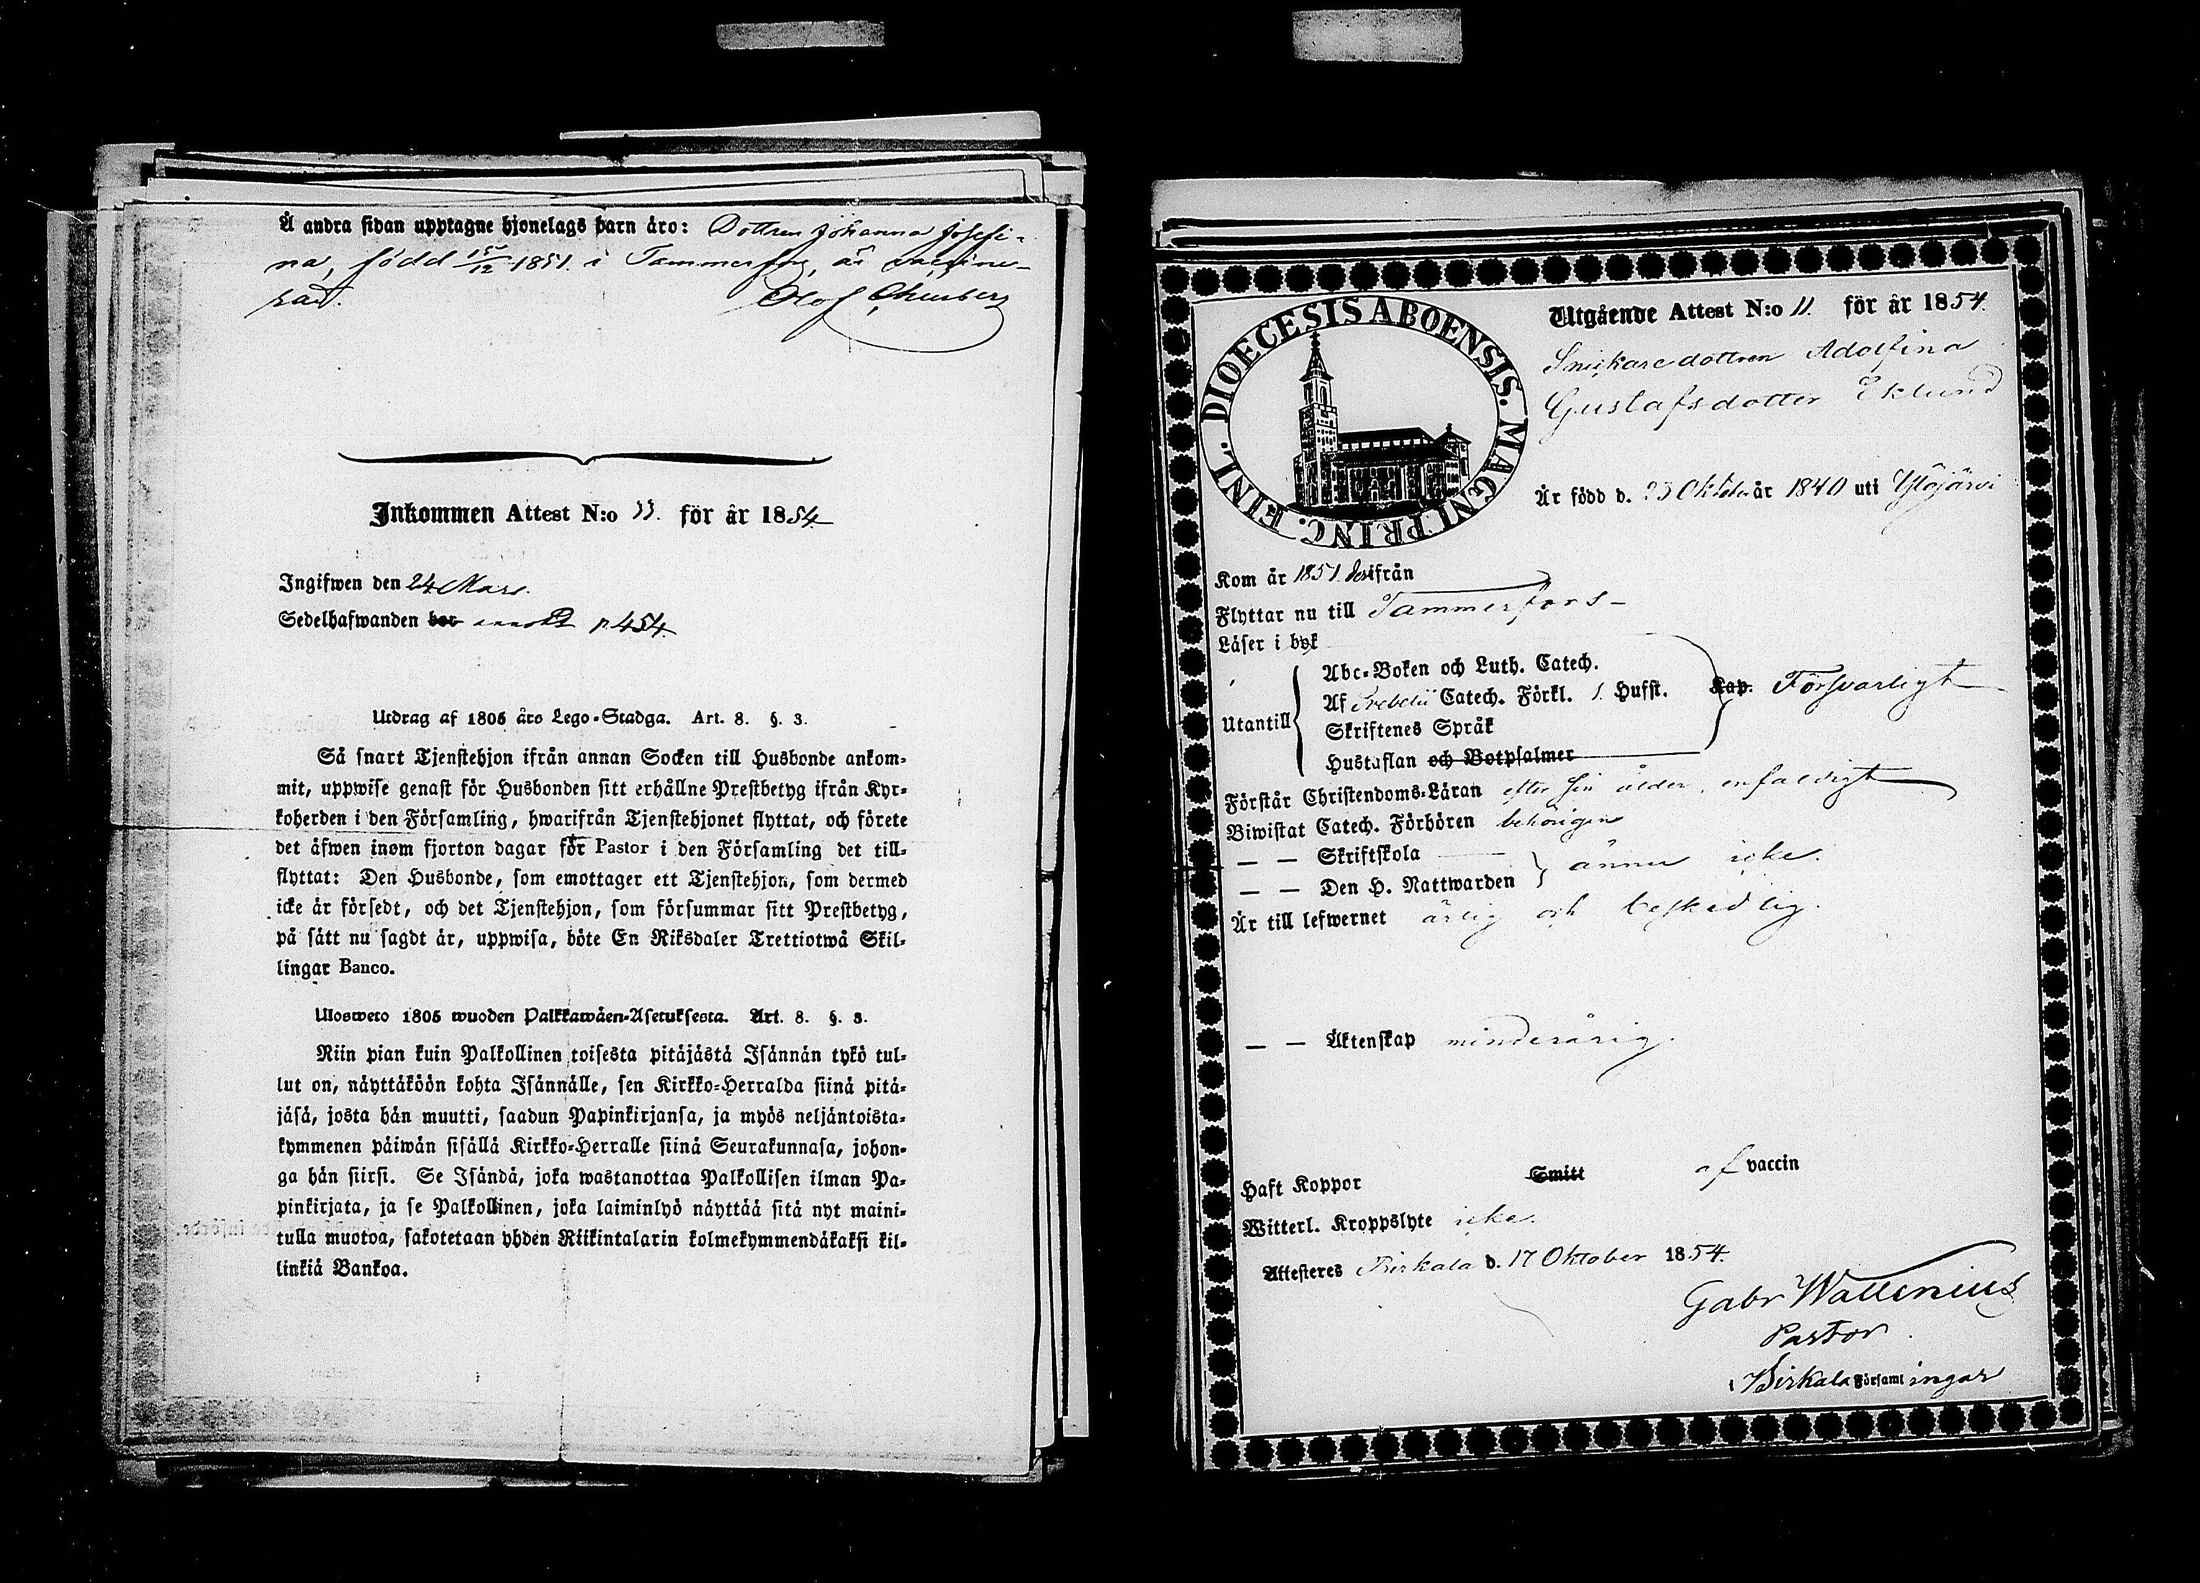 Å andra sidan upptagne hjonelags barn äro: Dottren Johanna Josefi-
na, född 15/12 1851. i Tammerfors, är vaccine-
rad.
Olof
Inkommen Attest N:o 33. för år 1854
Ingifwen den 24 Mars.
Sedelhafwanden bor p. 454.
Utdrag af 1805 års Lego-Stadga. Art. 8. §. 3.
Så snart Tjenstehjon ifrån annan Socken till Husbonde ankom-
mit, uppwise genast för Husbonden sitt erhållne Prestbetyg ifrån Kyr-
koherden i den Församling, hwarifrån Tjenstehjonet flyttat, och förete
det äfwen inom fjorton dagar för Pastor i den Församling det till-
flyttat: Den Husbonde, som emottager ett Tjenstehjon, som dermed
icke är försedt, och det Tjenstehjon, som försummar sitt Prestbetyg,
på sätt nu sagdt är, uppwisa, böte En Riksdaler Trettiotwå Skil-
lingar Banco.
Ulosweto 1805 wuoden Palkkawäen-Asetuksesta. Art. 8. §. 3.
Niin pian kuin Palkollinen toisesta pitäjästä Isännän tykö tul-
lut on, näyttäköön kohta Isännälle, sen Kirkko-Herralda siinä pitä-
jäsä, josta hän muutti, saadun Papinkirjansa, ja myös neljäntoista-
kymmenen päiwän sisällä Kirkko-Herralle siinä Seurakunnasa, johon-
ga hän siirsi. Se Isändä, joka wastanottaa Palkollisen ilman Pa-
pinkirjata, ja se Palkollinen, joka laiminlyö näyttää sitä nyt maini-
tulla muotoa, sakotetaan yhden Riikintalarin kolmekymmendäkaksi kil-
linkiä Bankoa.
DIOECESIS ABOENSIS. MAGNI PRINC. FINL.
Utgående Attest N:o 11. för år 1854.
Snickaredottren Adolfina
Gustafsdotter Eklund
Är född d. 23 Oktober år 1840 uti Ylöjärvi
Kom år 1851. derifrån
Flyttar nu till Tammerfors
Läser i bok
Utantill
Abc-Boken och Luth. Catech.
Af Svebelii Catech. Förkl. 1. Hufst. Kap. Försvarligt
Skriftenes Språk
Hustaflan och Botpsalmer
Förstår Christendoms-Läran efter sin ålder, enfaldigt
Biwistat Catech. Förhören behörigen
— — Skriftskola
— — Den H. Nattwarden ännu icke.
Är till lefwernet ärlig och beskedlig.
— — Äktenskap minderårig.
Haft Koppor Smitt af vaccin
Witterl. Kroppslyte icke.
Attesteres Birkala d. 17 Oktober 1854.
Gabr Wallenius
Pastor
i Birkala Församlingar